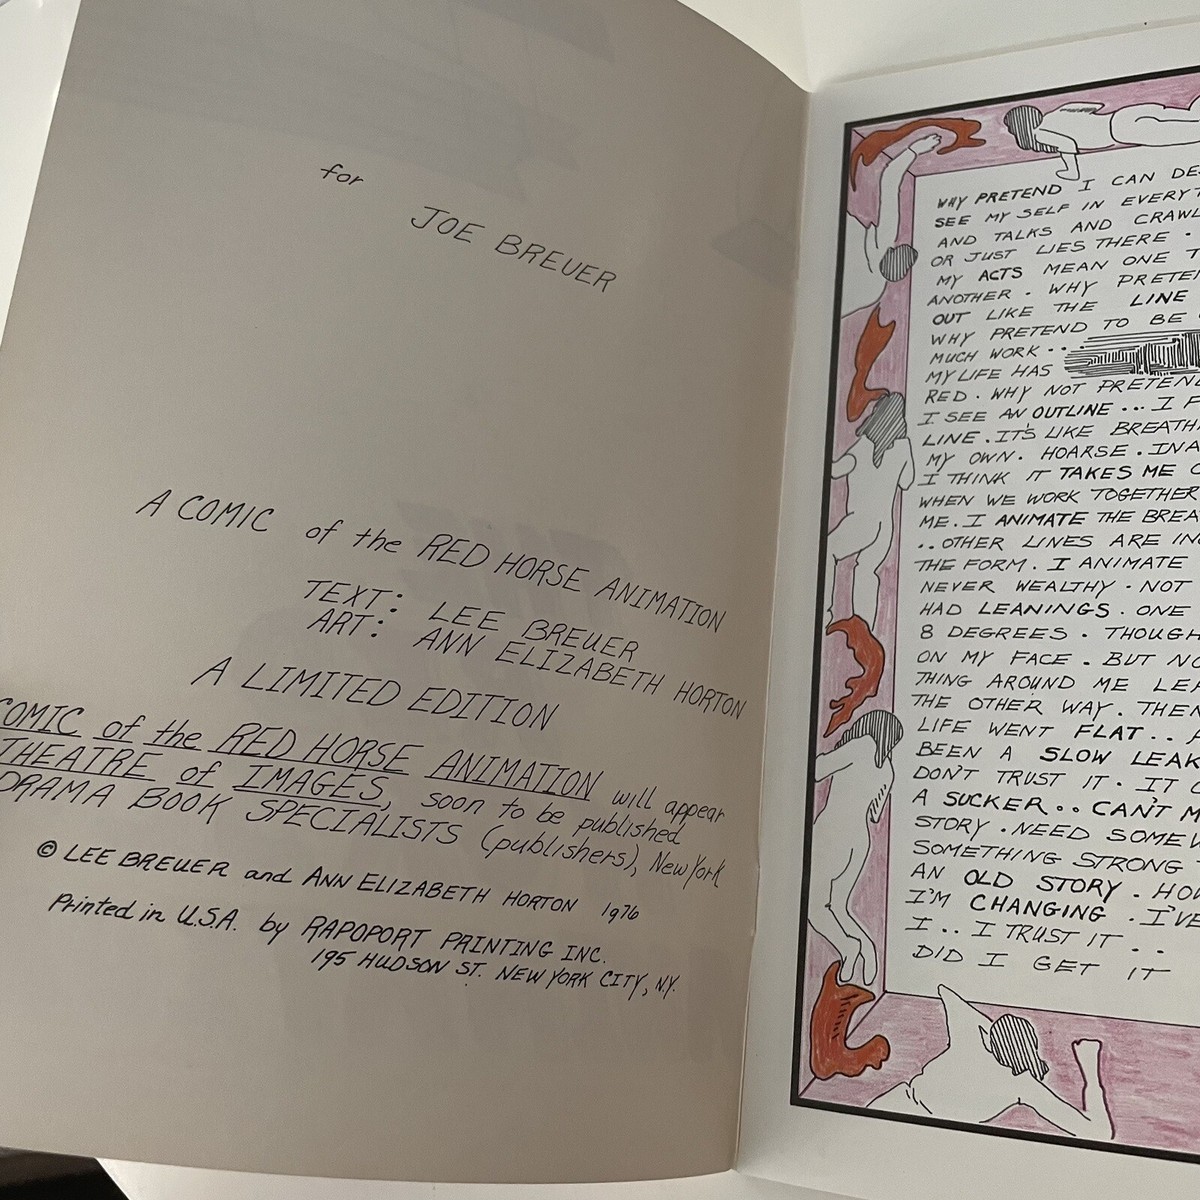 for
JOE BREUER
A COMIC of the RED HORSE ANIMATION
TEXT: LEE BREUER
ART: ANN ELIZABETH HORTON
A LIMITED EDITION
COMIC of the RED HORSE ANIMATION will appear
THEATRE of IMAGES, soon to be published
DRAMA BOOK SPECIALISTS (publishers), New York
© LEE BREUER and ANN ELIZABETH HORTON 1976
Printed in U.S.A. by RAPOPORT PRINTING INC.
195 HUDSON ST. NEW YORK CITY, N.Y.
WHY PRETEND I CAN
SEE MY SELF IN
AND TALKS AND
OR JUST LIES THERE .
MY ACTS MEAN ONE
ANOTHER . WHY
OUT LIKE THE LINE
WHY PRETEND TO BE
MUCH WORK ..
MY LIFE HAS
RED . WHY NOT PRETEND
I SEE AN OUTLINE ... I
LINE . IT'S LIKE
MY OWN . HOARSE .
I THINK IT TAKES ME
WHEN WE WORK TOGETHER
ME . I ANIMATE THE
.. OTHER LINES ARE
THE FORM . I ANIMATE
NEVER WEALTHY . NOT
HAD LEANINGS . ONE
8 DEGREES . THOUGH
ON MY FACE . BUT
THING AROUND ME
THE OTHER WAY . THEN
LIFE WENT FLAT ..
BEEN A SLOW LEAK
DON'T TRUST IT . IT
A SUCKER .. CAN'T
STORY . NEED
SOMETHING STRONG
AN OLD STORY .
I'M CHANGING . I'VE
I .. I TRUST IT ..
DID I GET IT